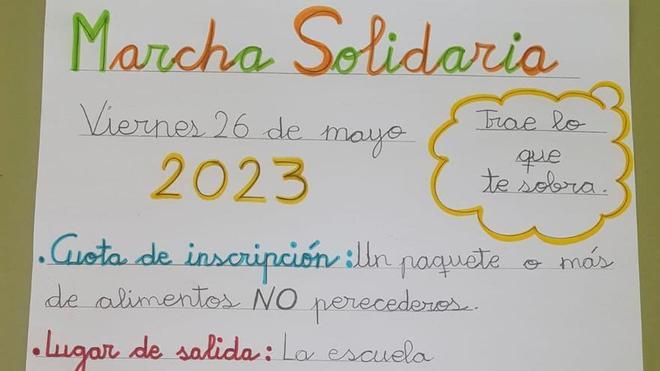 Marcha Solidaria
Viernes 26 de mayo
2023
Trae lo
que
te sobra.
. Cuota de inscripción: Un paquete o más
de alimentos NO perecederos.
. Lugar de salida: La escuela